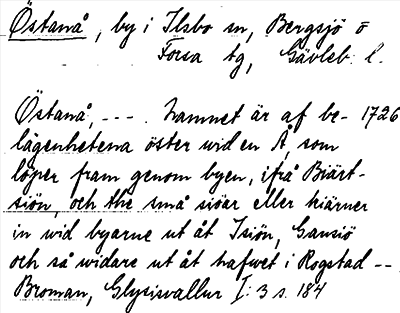 Östanå, by i Ilsbo sn, Bergsjö o
Forsa tg, Gävleb. l.
Östanå, - - - . namnet är af be- 1726
lägenhetena öster wid en Å, som
löper fram genom byen, ifrå Biärt-
siön, och the små siöar eller kiärner
in wid byarne ut åt Isiön, Gansiö
och så widare ut åt hafwet i Rogstad - -
Broman, Glysisvallur I: 3 s. 184